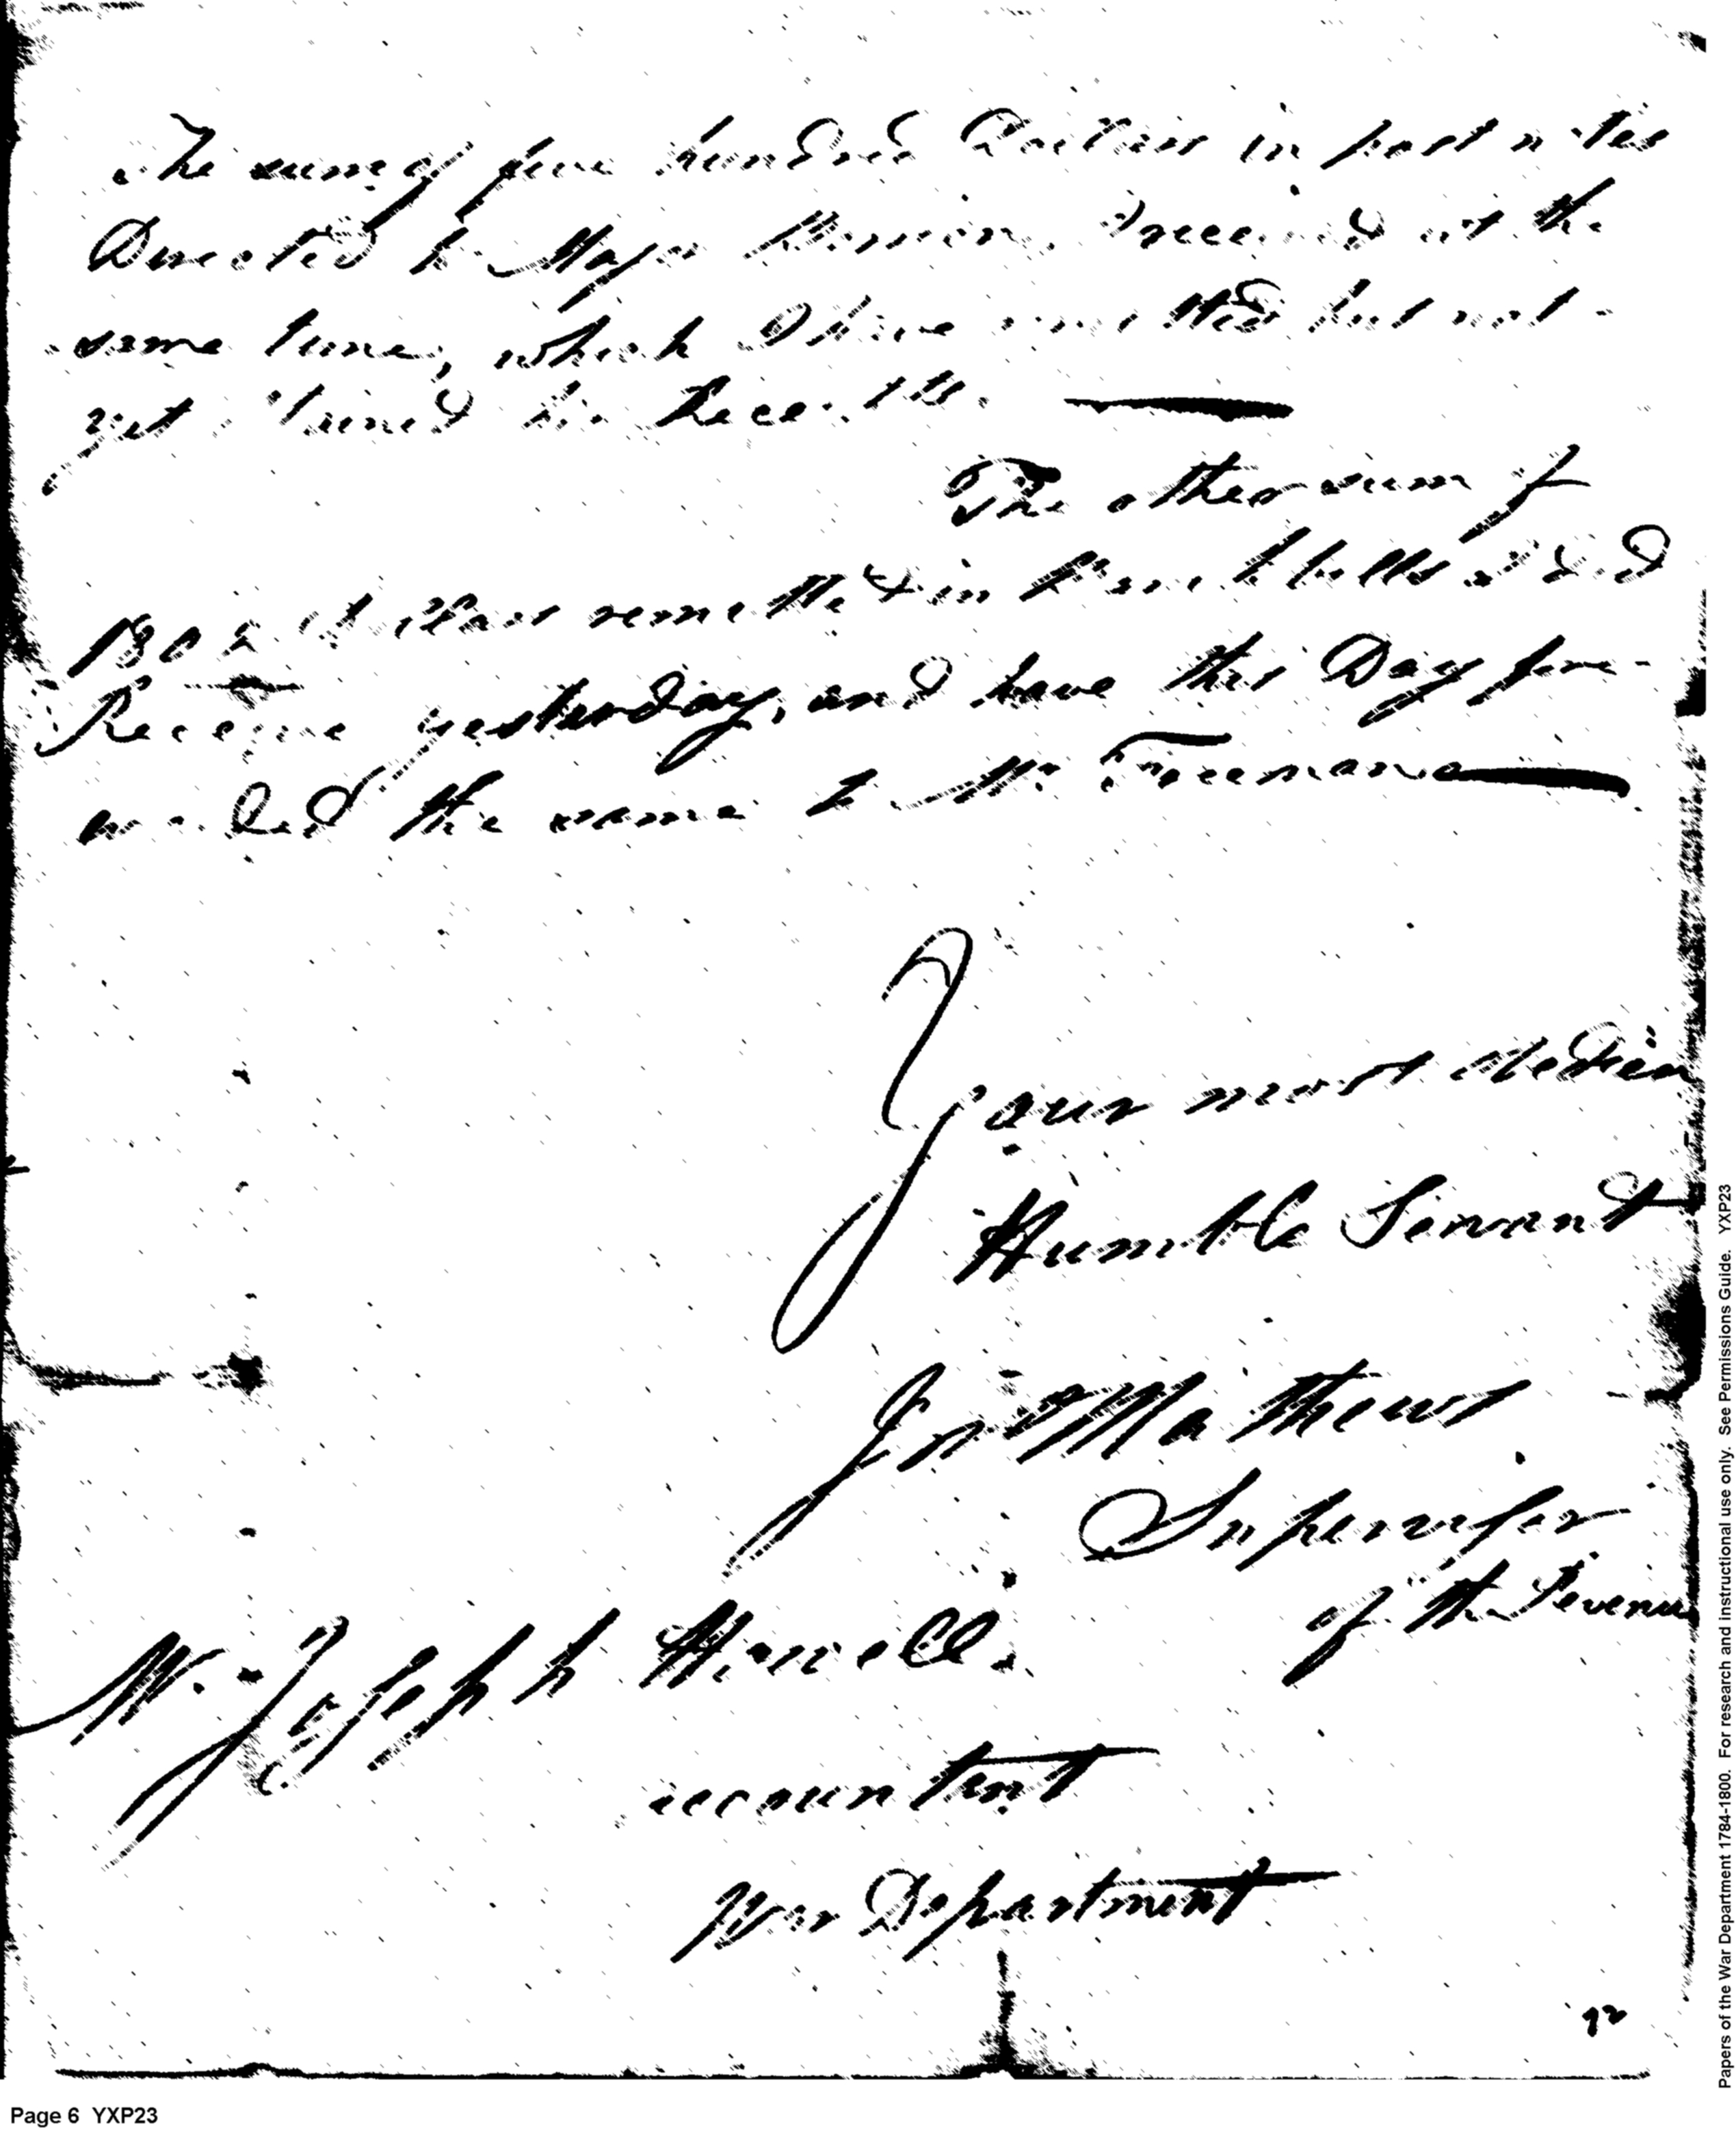 The sum of five hundred Dollars in post notes
Directed to Major received at the
same time, which I have remitted but not
yet the
The other sum of
180 Dollars remitted in bills I did
Receive yesterday, and have this Day for-
warded the same to Mr Freeman
Your most Obedien
Humble Servant
Jno Mathews
Supervisor
of the Revenue
Mr. Joseph Howell
accountent
War Department
92
Page 6 YXP23
Papers of the War Department 1784-1800. For research and instructional use only. See Permissions Guide. YXP23